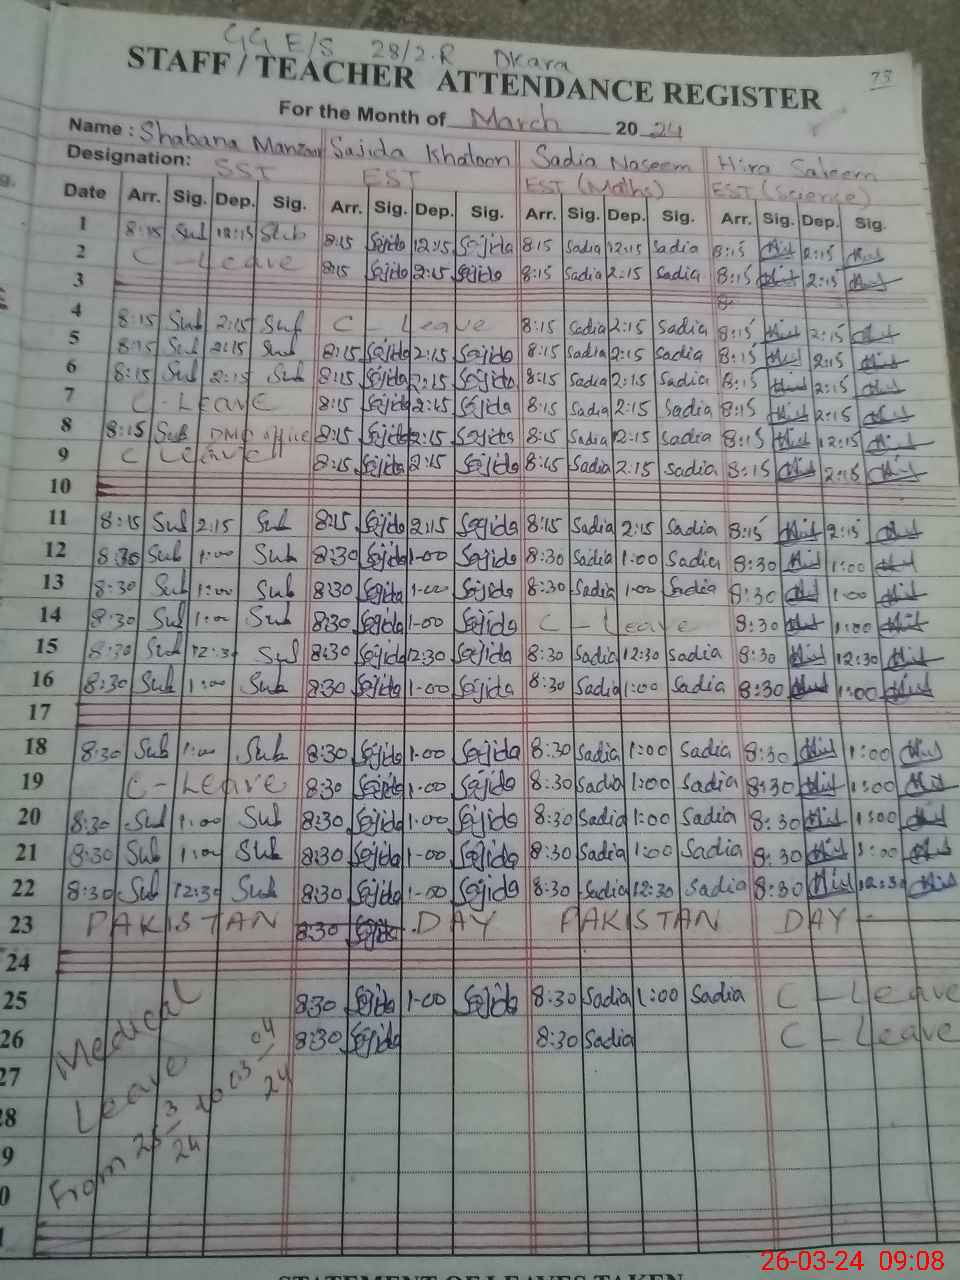 GG E/S 28/2.R Okara
STAFF / TEACHER ATTENDANCE REGISTER
73
For the Month of March 2024
Name : Shabana Manzoor Sajida Khatoon Sadia Naseem Hira Saleem
Designation: SST EST EST (Maths) EST (Science)
Date Arr. Sig. Dep. Sig. Arr. Sig. Dep. Sig. Arr. Sig. Dep. Sig. Arr. Sig. Dep. Sig.
1 8:15 Sub 12:15 Sub 8:15 Sajida 12:15 Sajida 8:15 Sadia 12:15 Sadia 8:15 2:15
2 C - Leave 8:15 Sajida 2:15 Sajida 8:15 Sadia 2:15 Sadia 8:15 2:15
3 8:
4 8:15 Sub 2:15 Sub C - Leave 8:15 Sadia 2:15 Sadia 8:15 2:15
5 8:15 Sub 2:15 Sub 8:15 Sajida 2:15 Sajida 8:15 Sadia 2:15 Sadia 8:15 2:15
6 8:15 Sub 2:15 Sub 8:15 Sajida 2:15 Sajida 8:15 Sadia 2:15 Sadia 8:15 2:15
7 C - Leave 8:15 Sajida 2:15 Sajida 8:15 Sadia 2:15 Sadia 8:15 2:15
8 8:15 Sub office 8:15 Sajida 12:15 Sajida 8:15 Sadia 12:15 Sadia 8:15 12:15
9 C Leave 8:15 Sajida 2:15 Sajida 8:15 Sadia 2:15 Sadia 8:15 2:15
10
11 8:15 Sub 2:15 Sub 8:15 Sajida 2:15 Sajida 8:15 Sadia 2:15 Sadia 8:15 2:15
12 8:30 Sub 1:00 Sub 8:30 Sajida 1-00 Sajida 8:30 Sadia 1:00 Sadia 8:30 1:00
13 8:30 Sub 1:00 Sub 8:30 Sajida 1-00 Sajida 8:30 Sadia 1-00 Sadia 8:30 1:00
14 8:30 Sub 1:00 Sub 8:30 Sajida 1-00 Sajida C - Leave 8:30 1:00
15 8:30 Sub 12:30 Sub 8:30 Sajida 12:30 Sajida 8:30 Sadia 12:30 Sadia 8:30 12:30
16 8:30 Sub 1:00 Sub 8:30 Sajida 1-00 Sajida 8:30 Sadia 1:00 Sadia 8:30 1:00
17
18 8:30 Sub 1:00 Sub 8:30 Sajida 1-00 Sajida 8:30 Sadia 1:00 Sadia 8:30 1:00
19 C - Leave 8:30 Sajida 1-00 Sajida 8:30 Sadia 1:00 Sadia 8:30 1:00
20 8:30 Sub 1:00 Sub 8:30 Sajida 1-00 Sajida 8:30 Sadia 1:00 Sadia 8:30 1:00
21 8:30 Sub 1:00 Sub 8:30 Sajida 1-00 Sajida 8:30 Sadia 1:00 Sadia 8:30 1:00
22 8:30 Sub 12:30 Sub 8:30 Sajida 1-00 Sajida 8:30 Sadia 12:30 Sadia 8:30 12:30
23 PAKISTAN 8:30 Sajida DAY PAKISTAN DAY
24
25 8:30 Sajida 1-00 Sajida 8:30 Sadia 1:00 Sadia C - Leave
26 8:30 Sajida 8:30 Sadia C - Leave
Medical
Leave
From 25/3/24 to 03/04/24
27
8
9
0
1
STATEMENT OF LEAVES TAKEN
26-03-24 09:08